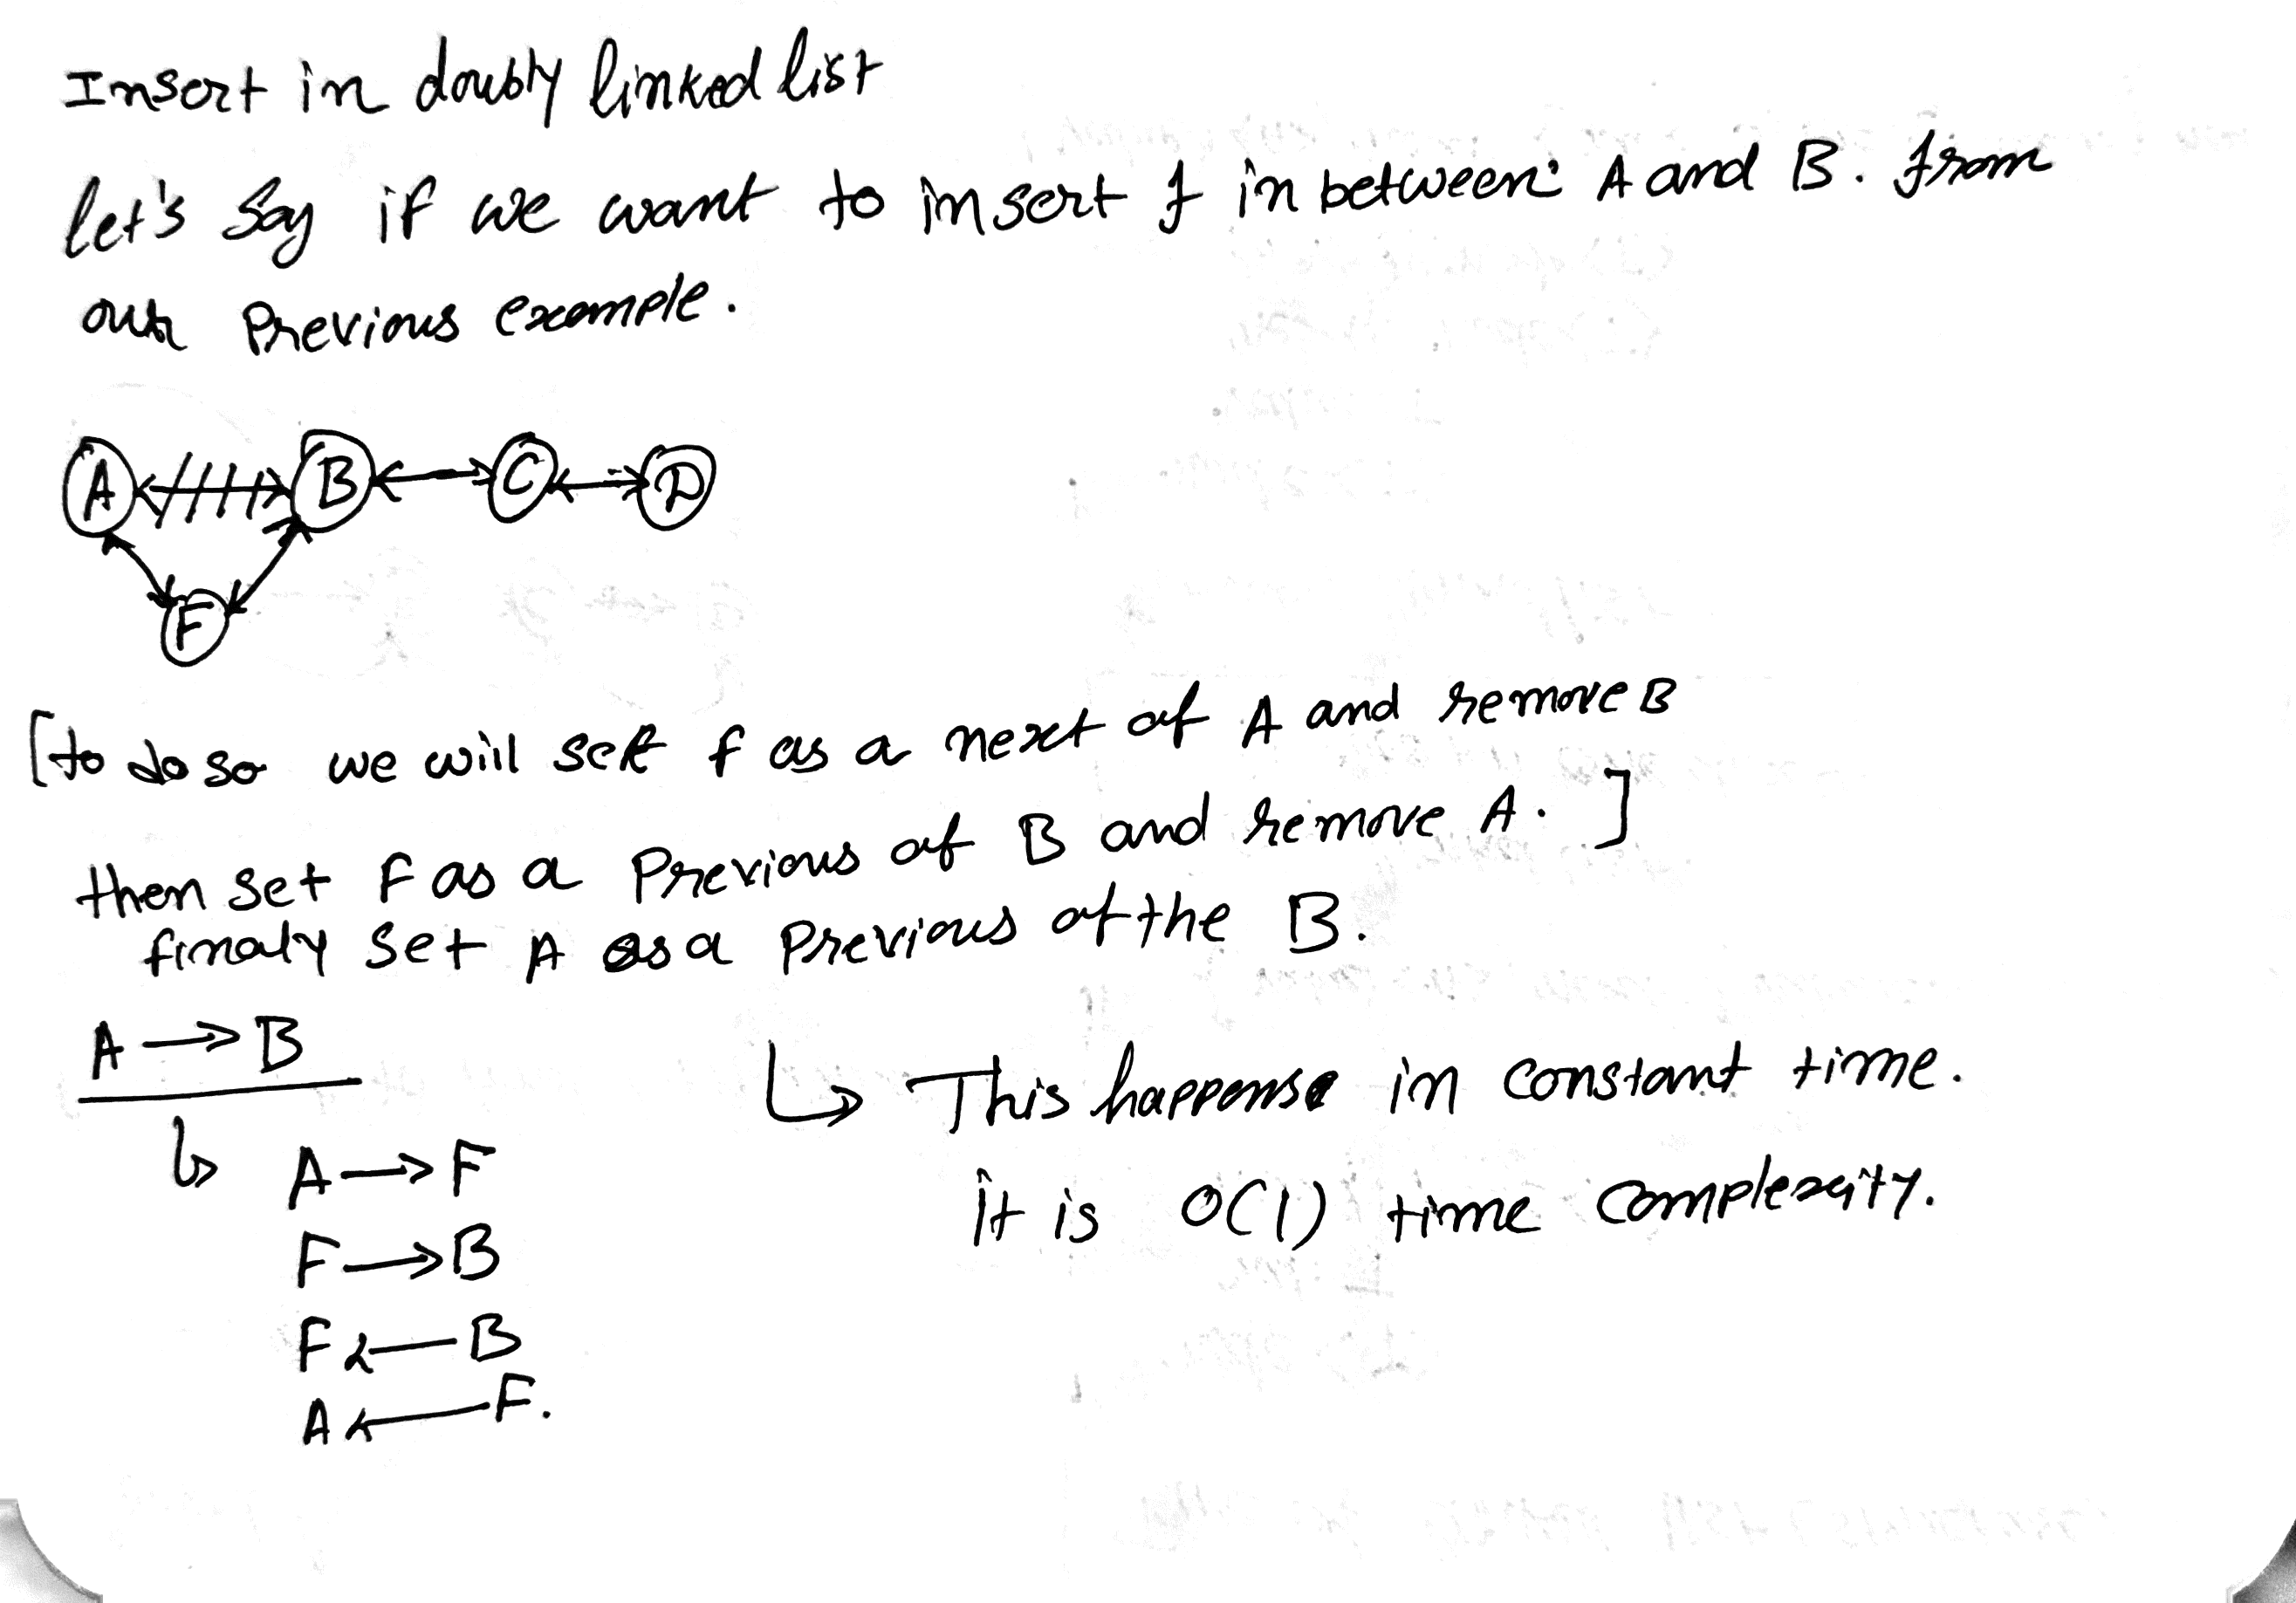 Insert in doubly linked list
let's say if we want to insert f in between A and B. from
our previous example.
A B C D
F
[to do so we will set f as a next of A and remove B
then set F as a Previous of B and remove A. ]
finaly set A as a Previous of the B.
A → B
↳ This happens in constant time.
↳ A → F
it is O(1) time complexity.
F → B
F ← B
A ← F.